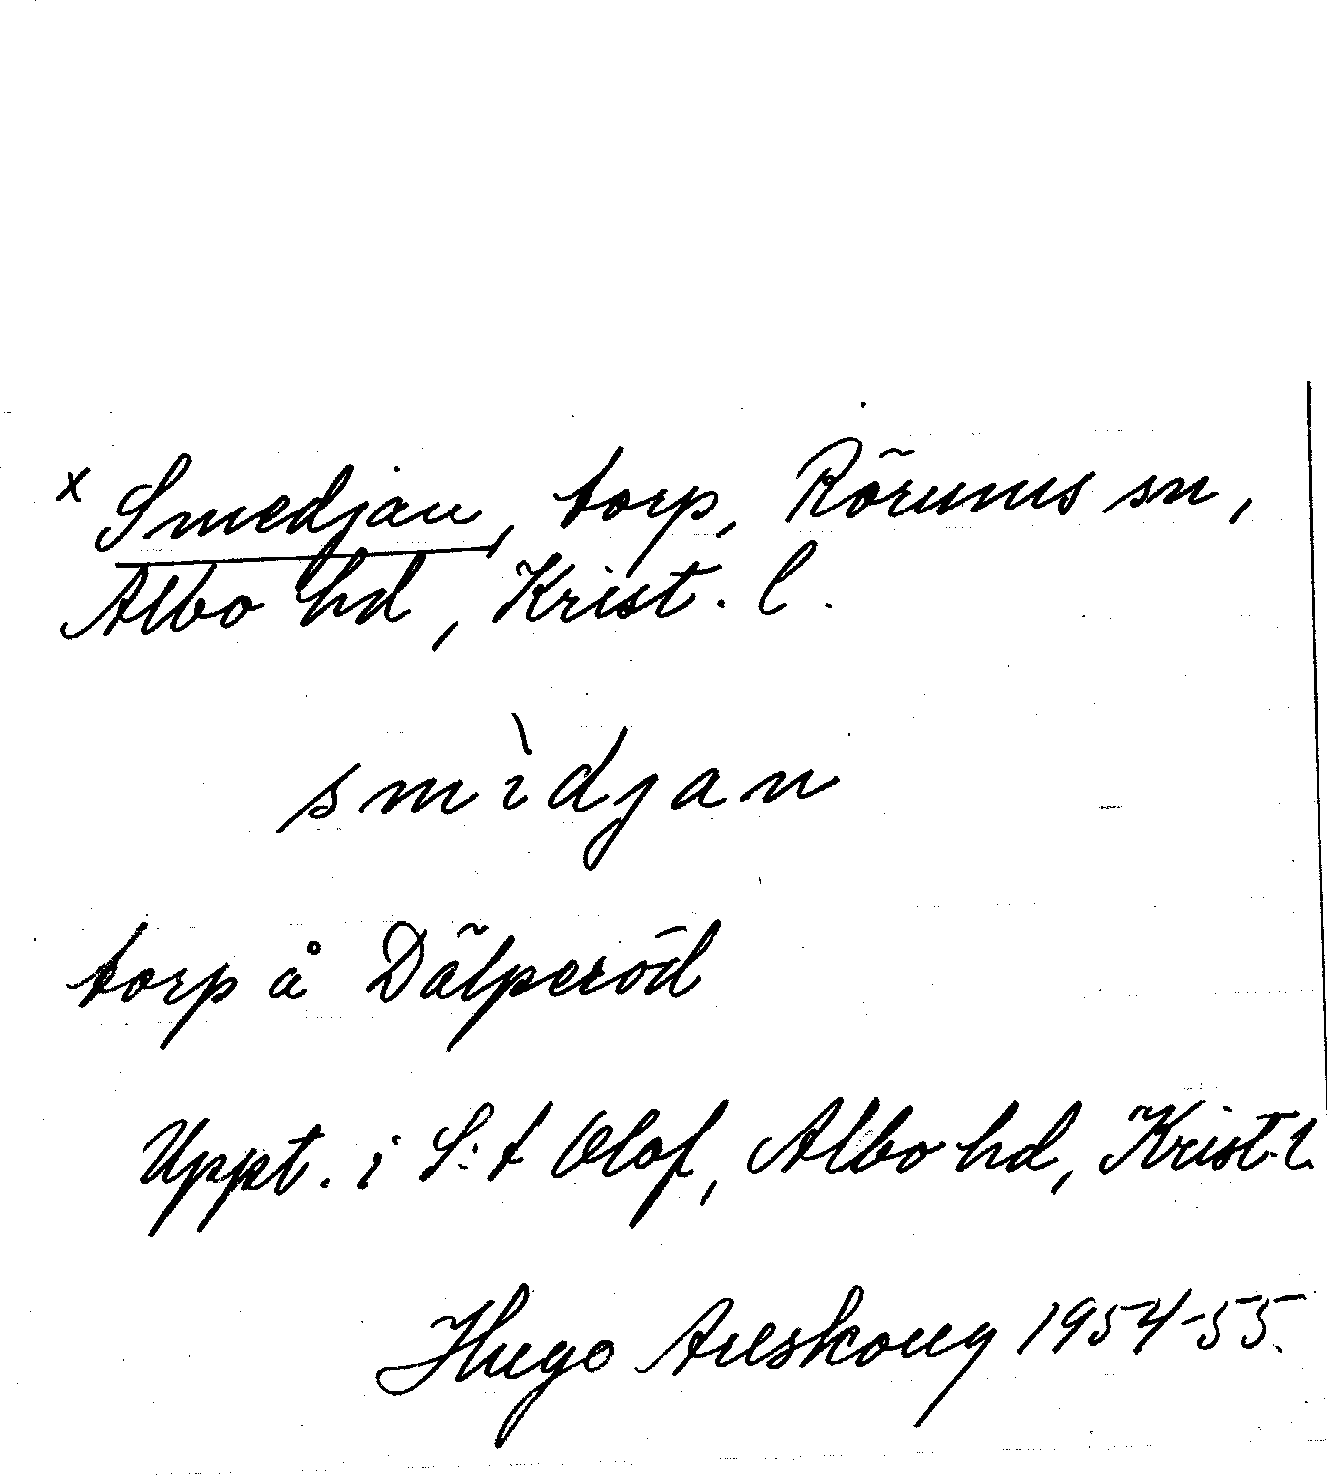 x Smedjan, torp, Rörums sn,
Albo hd, Krist. l.
smìdjan
torp å Dälperöd
Uppt. i S:t Olof, Albo hd, Krist. l.
Hugo Areskoug 1954-55.